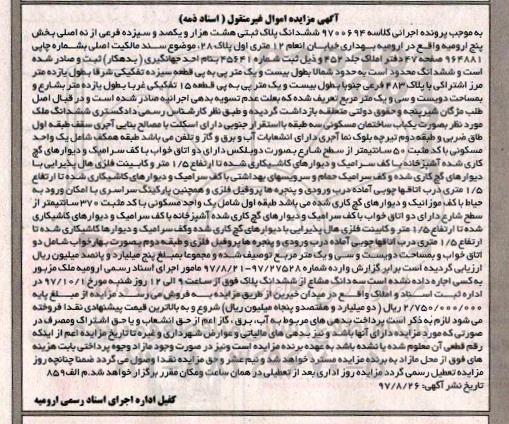 آگهی مزایده اموال غیرمنقول (اسناد ذمه)
به موجب پرونده اجرائی کلاسه 9700694 ششدانگ پلاک ثبتی هشت هزار و یکصد و سیزده فرعی از نه اصلی بخش
پنج ارومیه واقع در ارومیه بهداری خیابان انعام 12 متری اول پلاک 28، موضوع سند مالکیت اصلی بشماره چاپی
964881 صفحه 47 دفتر املاک جلد 252 و ذیل ثبت شماره 35641 بنام احد جهانگیری (بدهکار) ثبت و صادر شده
است و ششدانگ محدود است به حدود شمالا بطول بیست و یک متر پی به پی قطعه سیزده تفکیکی شرقا بطول یازده متر
مرز اشتراکی با پلاک 483 فرعی جنوبا بطول بیست و یک متر پی به پی قطعه 15 تفکیکی غربا بطول یازده متر بشارع و
بمساحت دویست و سی و یک متر مربع تعریف شده که بعلت عدم تسویه بدهی اجرائیه صادر شده است و در قبال اصل
طلب مژگان شیرپنجه و حقوق دولتی متعلقه بازداشت گردیده و طبق نظر کارشناس رسمی دادگستری ششدانگ ملک
مورد نظر بصورت یکباب ساختمان مسکونی سه طبقه با استقرار جنوبی دارای اسکلت با مصالح بنایی آجری سقف طبقه اول
طاق ضربی و طبقه دوم تیرچه بلوک نما آجری دارای انشعابات آب و برق و گاز و تلفن می باشد طبقه همکف شامل یک واحد
مسکونی با کد مثبت 50 سانتیمتر از سطح شارع بصورت دوبلکس دارای دو اتاق خواب با کف سرامیک و دیوارهای گچ کاری
شده آشپزخانه با کف سرامیک و دیوارهای کاشیکاری شده تا ارتفاع 1/5 متر و کابینت فلزی هال پذیرایی با
دیوارهای گچ کاری شده و کف سرامیک حمام و سرویسهای بهداشتی با کف سرامیک و دیوارهای کاشیکاری شده تا ارتفاع
1/5 متری درب اتاقها چوبی آماده درب ورودی و پنجره ها پروفیل فلزی و همچنین پارکینگ سراسری با امکان ورود به
حیاط با کف موزائیک و دیوارهای گچ کاری شده می باشد طبقه اول شامل یک واحد مسکونی با کد مثبت 370 سانتیمتر از
سطح شارع دارای دو اتاق خواب با کف سرامیک و دیوارهای گچ کاری شده آشپزخانه با کف سرامیک و دیوارهای کاشیکاری
شده تا ارتفاع 1/5 متر و کابینت فلزی هال پذیرایی با دیوارهای گچ کاری شده وکف سرامیک و دیوارها کاشیکاری شده تا
ارتفاع 1/5 متری درب اتاقها چوبی آماده درب ورودی و پنجره ها پروفیل فلزی و طبقه دوم بصورت بهارخواب شامل دو
اتاق خواب و بمساحت دویست و سی و یک متر مربع توصیف شده و مجموعا بمبلغ پنج میلیارد و پانصد میلیون ریال
ارزیابی گردیده است برابر گزارش وارده شماره 97/27528-97/8/21 مامور اجرای اسناد رسمی ارومیه ملک مزبور
به کسی اجاره داده نشده است سه دانگ مشاع از ششدانگ پلاک فوق از ساعت 9 الی 12 روز شنبه مورخ 97/10/1 در
اداره ثبت اسناد و املاک واقع در میدان خیرین از طریق مزایده به فروش می رسد مزایده از مبلغ پایه
2/750/000/000 ریال (دو میلیارد و هفتصد و پنجاه میلیون ریال) شروع و به بالاترین قیمت پیشنهادی نقدا فروخته
می شود لازم به ذکر است پرداخت بدهی های مربوط به آب، برق، گاز اعم از حق انشعاب و یا حق اشتراک و مصرف در
صورتی که مورد مزایده دارای آنها باشد و نیز بدهی های مالیاتی و عوارض شهرداری و غیره تا تاریخ مزایده اعم از اینکه
رقم قطعی آن معلوم شده یا نشده باشد به عهده برنده مزایده است و نیز در صورت وجود مازاد وجوه پرداختی بابت هزینه
های فوق از محل مازاد به برنده مزایده مسترد خواهد شد و نیم عشر و حق مزایده نقدا وصول می گردد ضمنا چنانچه روز
مزایده تعطیل رسمی گردد مزایده روز اداری بعد از تعطیلی در همان ساعت و مکان مقرر برگزار خواهد شد. م الف 859
تاریخ نشر آگهی: 97/8/26
کفیل اداره اجرای اسناد رسمی ارومیه